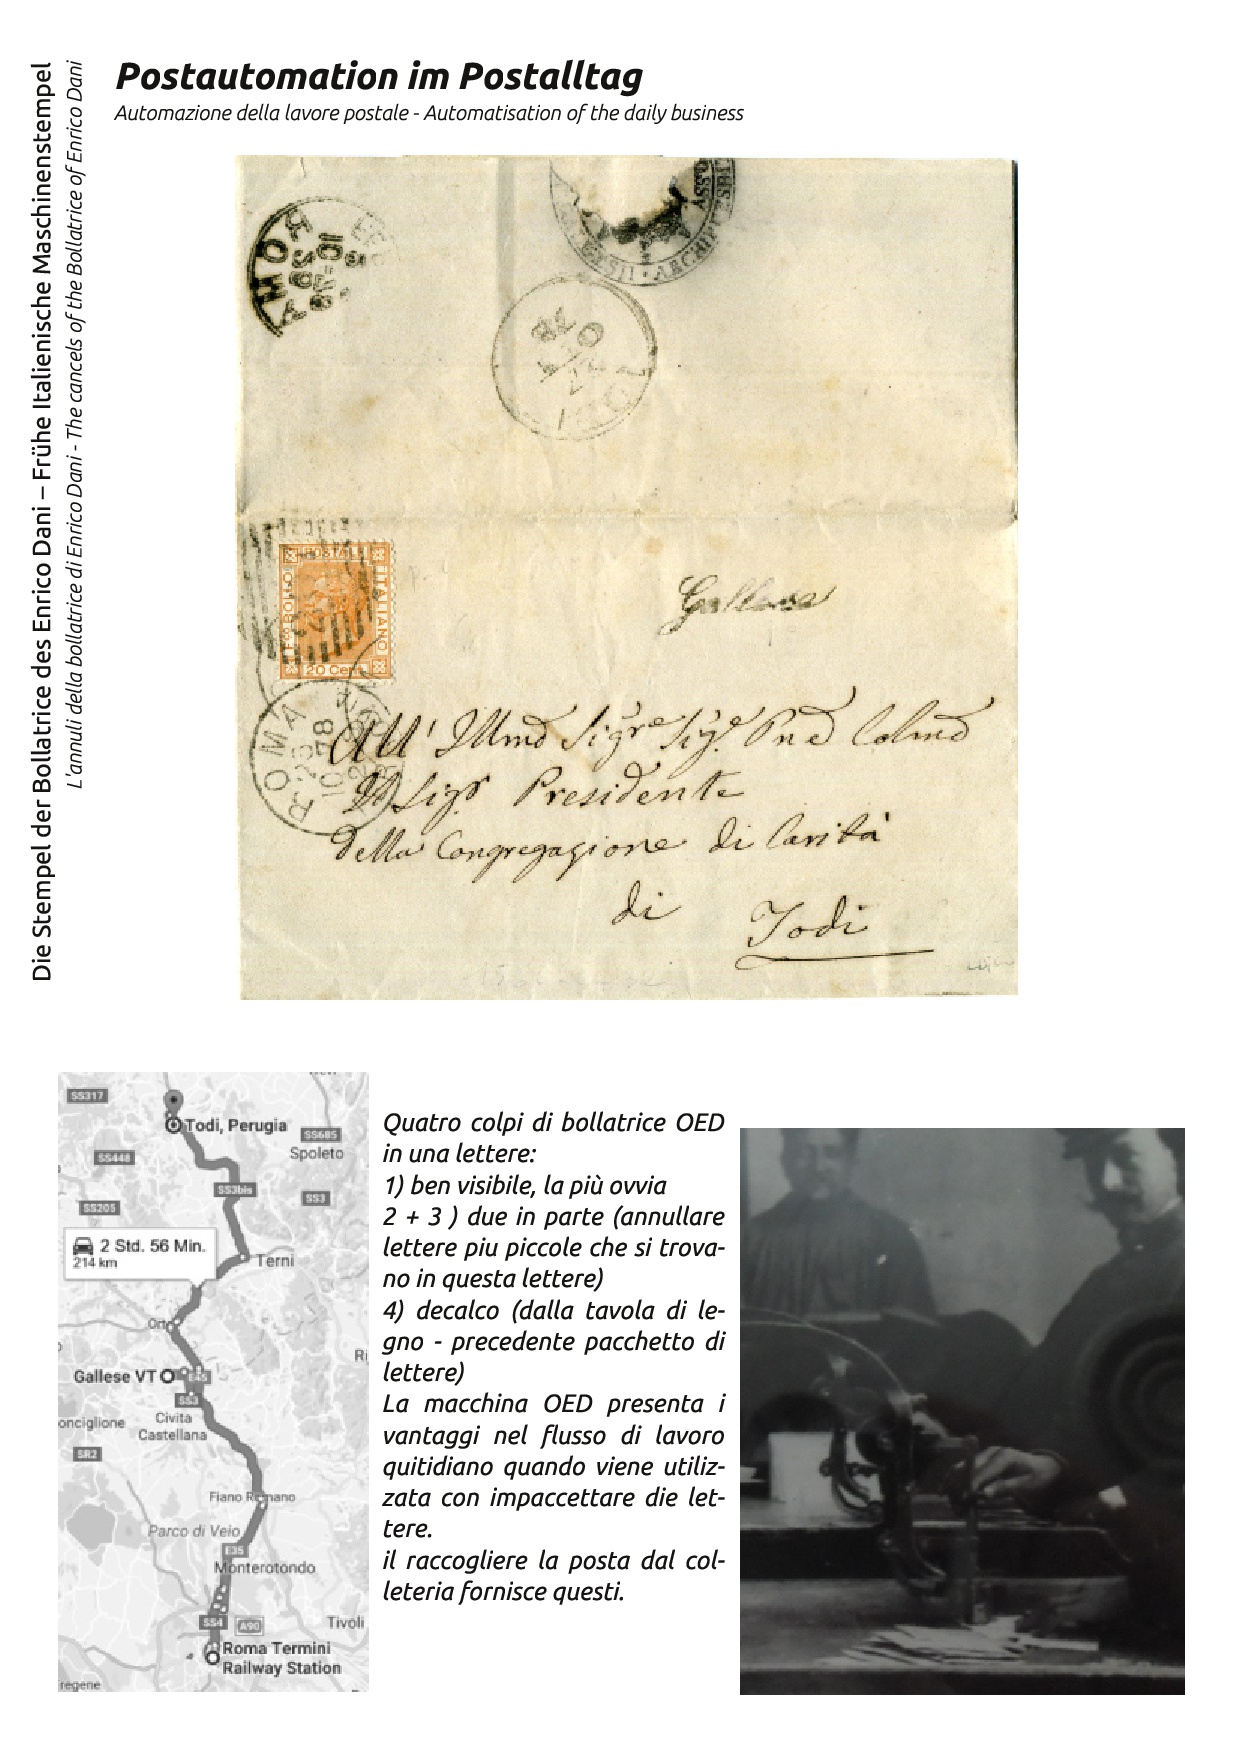 Die Stempel der Bollatrice des Enrico Dani – Frühe Italienische Maschinenstempel
L'annuli della bollatrice di Enrico Dani - The cancels of the Bollatrice of Enrico Dani
Postautomation im Postalltag
Automazione della lavore postale - Automatisation of the daily business
ROMA
10
78
TODI
POSTALE
FCO BOLLO
ITALIANO
20 Cent
ROMA
23
10 78
Gallese
All' Illmo Sigre Sige Pne Colmo
Il Sigr Presidente
della Congregazione di Carità
di Todi
SS317
Todi, Perugia
SS685
SS448
Spoleto
SS3bis
SS3
SS205
2 Std. 56 Min.
214 km
Terni
Orte
Gallese VT
E45
SS3
Civita
Castellana
onciglione
SR2
Ri
Fiano Romano
Parco di Veio
E35
Monterotondo
SS4
A90
Tivoli
Roma Termini
Railway Station
regene
Quatro colpi di bollatrice OED
in una lettere:
1) ben visibile, la più ovvia
2 + 3 ) due in parte (annullare
lettere piu piccole che si trova-
no in questa lettere)
4) decalco (dalla tavola di le-
gno - precedente pacchetto di
lettere)
La macchina OED presenta i
vantaggi nel flusso di lavoro
quitidiano quando viene utiliz-
zata con impaccettare die let-
tere.
il raccogliere la posta dal col-
leteria fornisce questi.